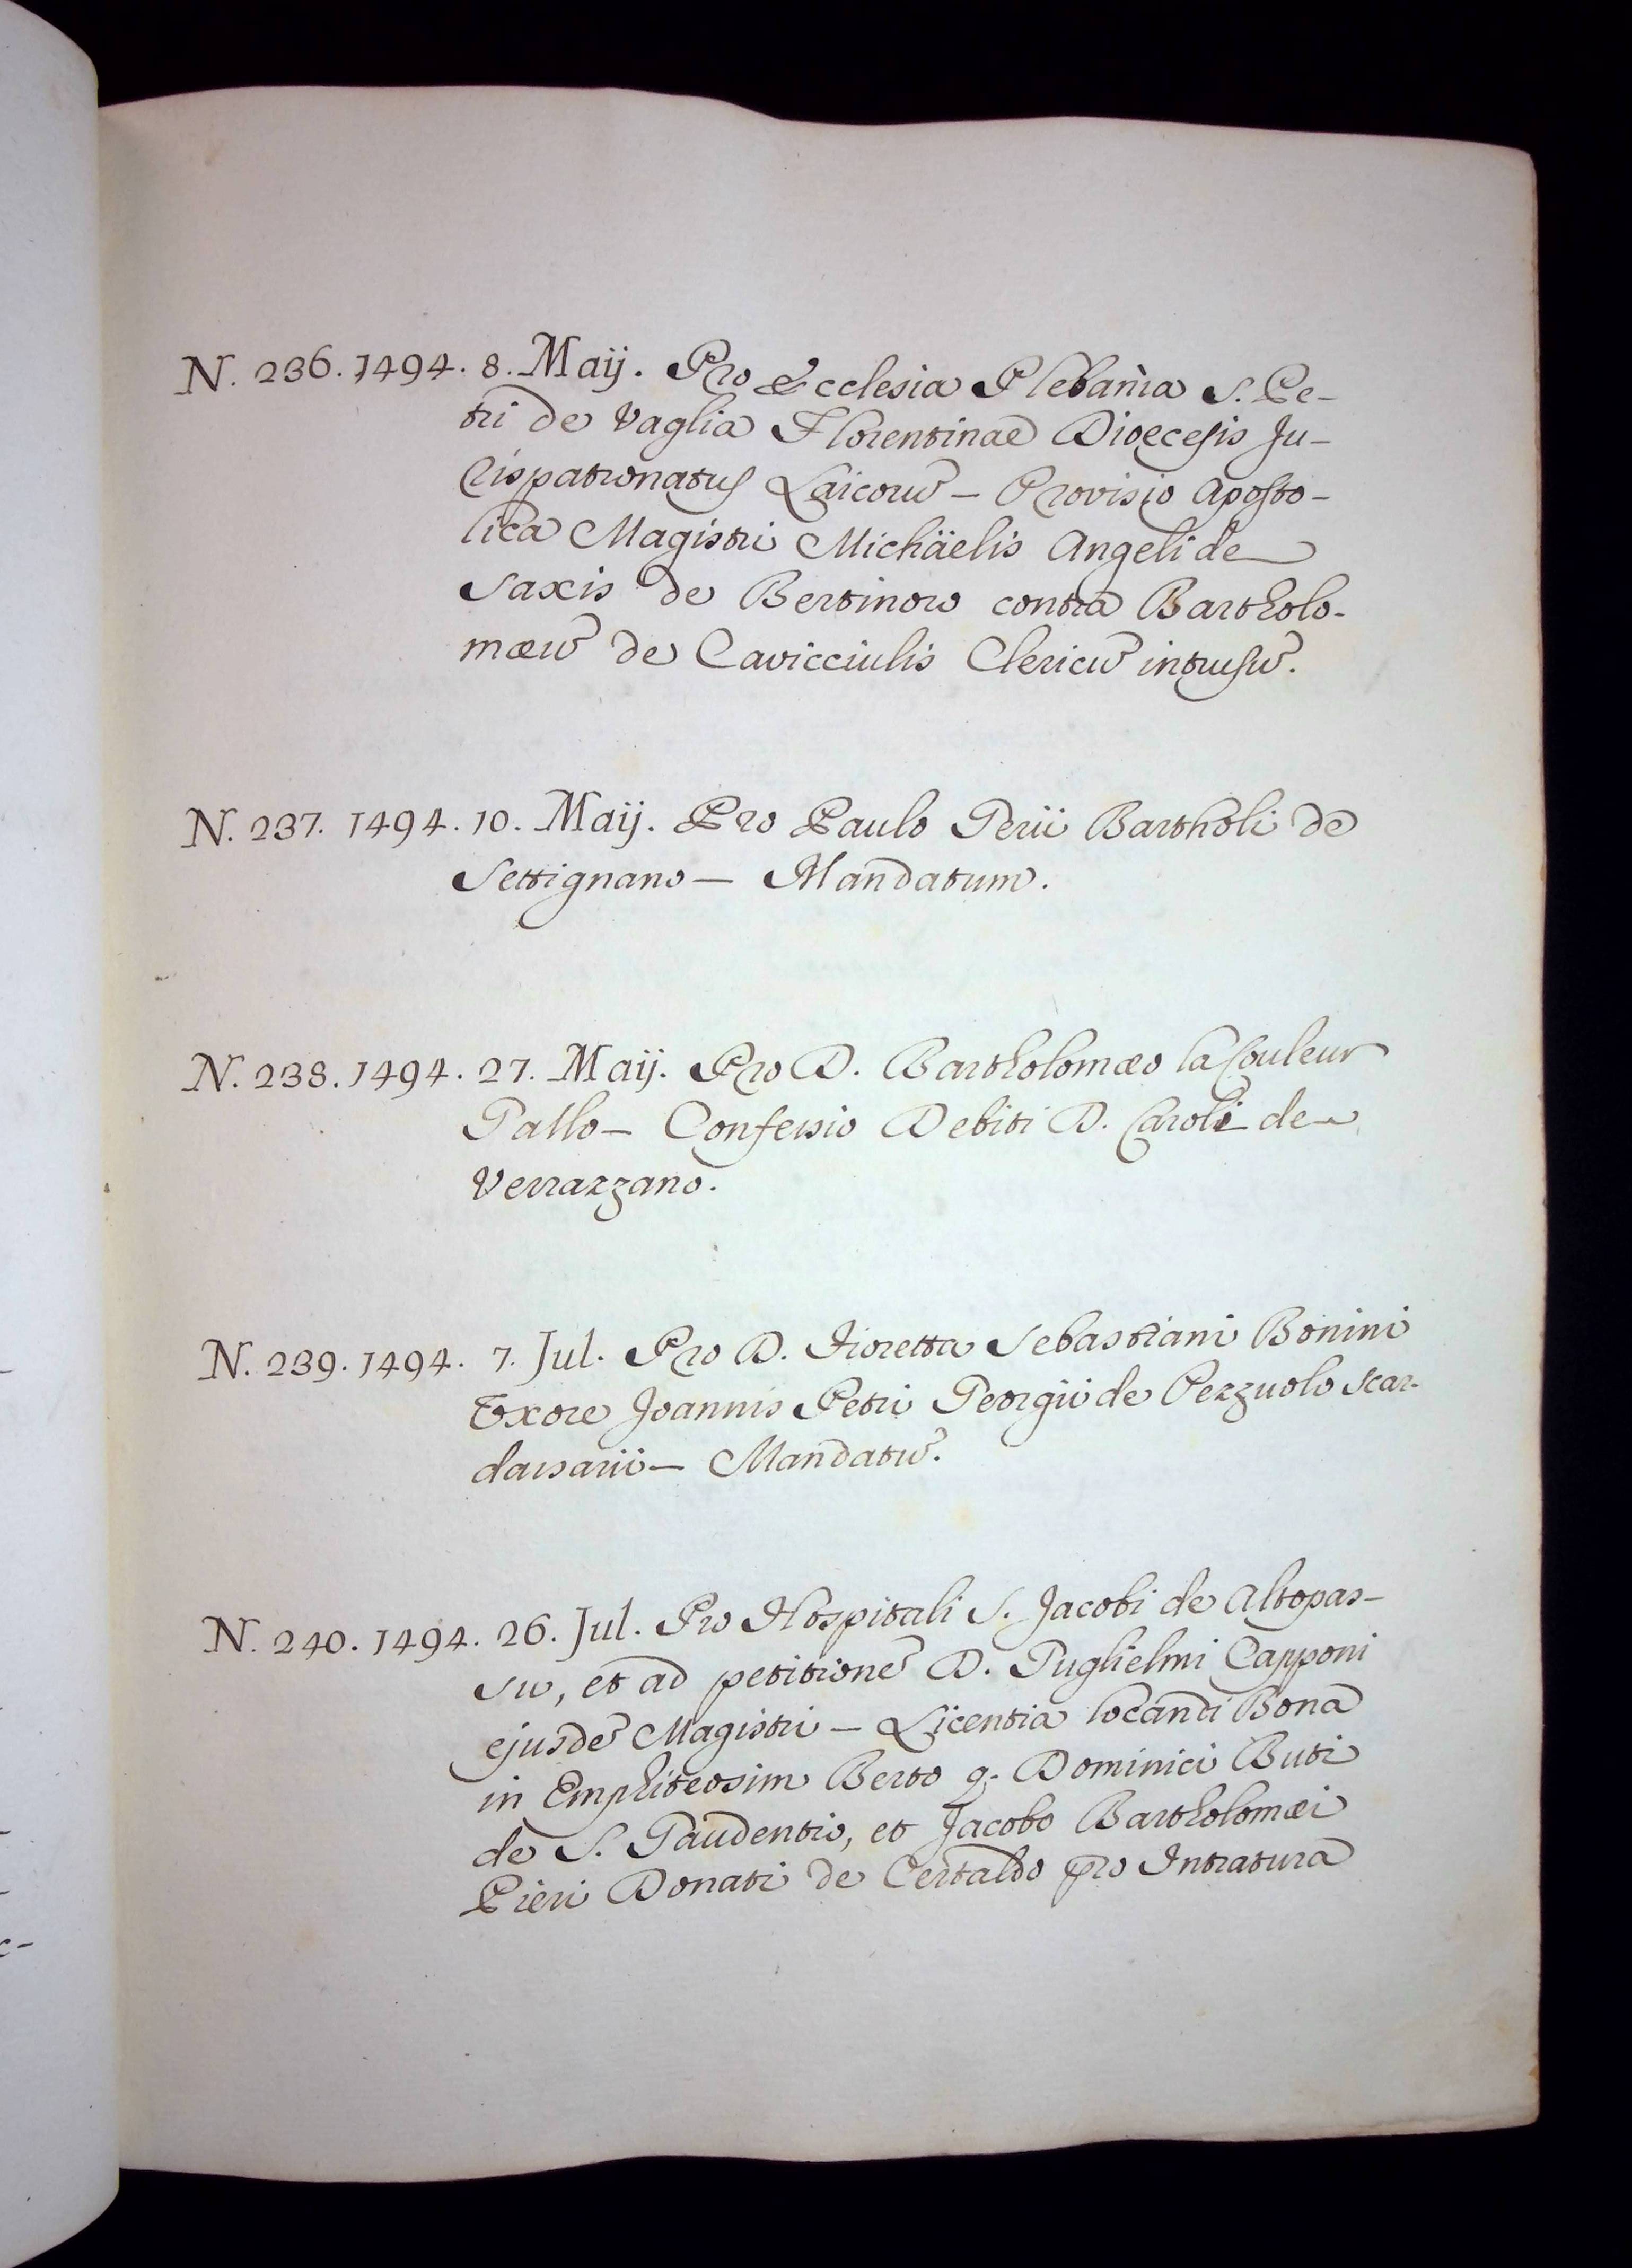 N. 236. 1494. 8. Maij. Pro Ecclesia Plebania S. Pe-
tri de Vaglia Florentinae Dioecesis Ju-
rispatronatus Laicorũ – Provisio Aposto-
lica Magistri Michäelis Angeli de
Saxis de Bertinoro contra Bartholo-
mæũ de Cavicciulis Clericũ intrusũ.
N. 237. 1494. 10. Maij. Pro Paulo Gerii Bartholi de
Settignano — Mandatum.
N. 238. 1494. 27. Maij. Pro D. Bartholomæo la Couleur
Gallo – Confessio Debiti D. Caroli de
Verrazzano.
N. 239. 1494. 7. Jul. Pro D. Fioretta Sebastiani Bonini
Uxore Joannis Petri Georgii de Pezzuolo Scar-
dassarii — Mandatũ.
N. 240. 1494. 26. Jul. Pro Hospitali S. Jacobi de Altopas-
su, et ad petitionẽ D. Guglielmi Capponi
ejusdẽ Magistri – Licentia locandi Bona
in Emphiteosim Berto q. Dominici Buti
de S. Gaudentio, et Jacobo Bartholomæi
Pieri Donati de Certaldo pro Intratura